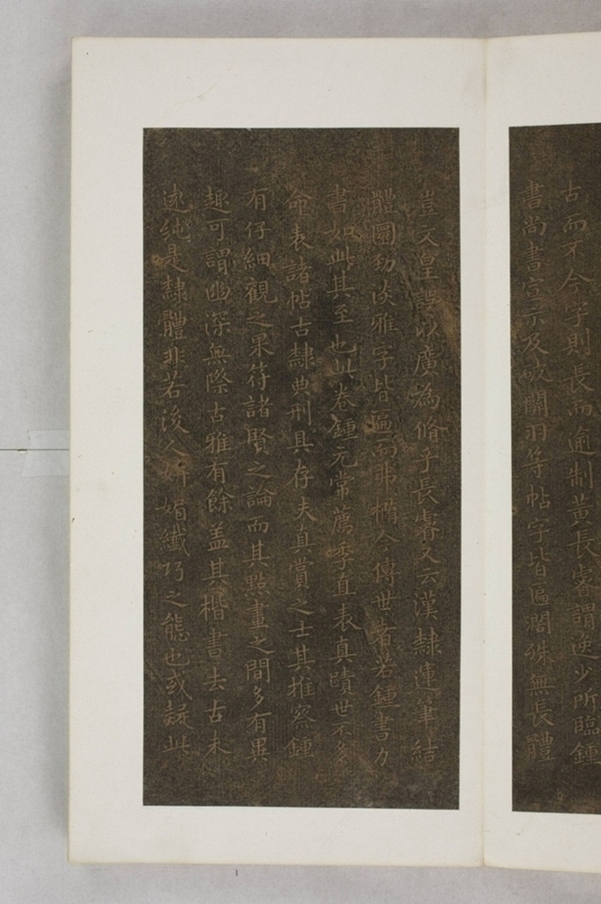 古而不今字則長而逾制黃長睿謂逸少所臨鍾
書尚書宣示及破關羽等帖字皆匾濶殊無長體
豈文皇以廣為脩乎長睿又云漢隸運筆結
體圜勁淡雅字皆匾而弗橢今傳世者若鍾書力
書如此其至也此卷鍾元常薦季直表真蹟世不多
命表諸帖古隸典刑具存夫真賞之士其推察鍾
有仔細觀之果符諸賢之論而其點畫之間多有異
趣可謂幽深無際古雅有餘盖其楷書去古未
遠純是隸體非若後人妍媚纖巧之態也或疑此